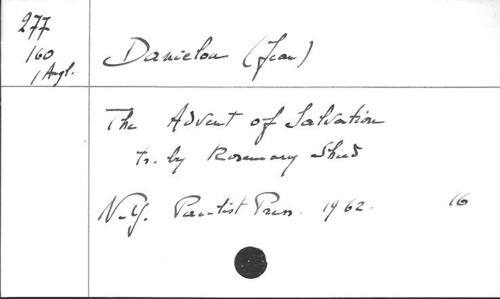 277
160
1 Angl.
Danielou (Jean)
The Advent of Salvation
tr. by Rosemary Sheed
N.Y. Paulist Press. 1962. 16